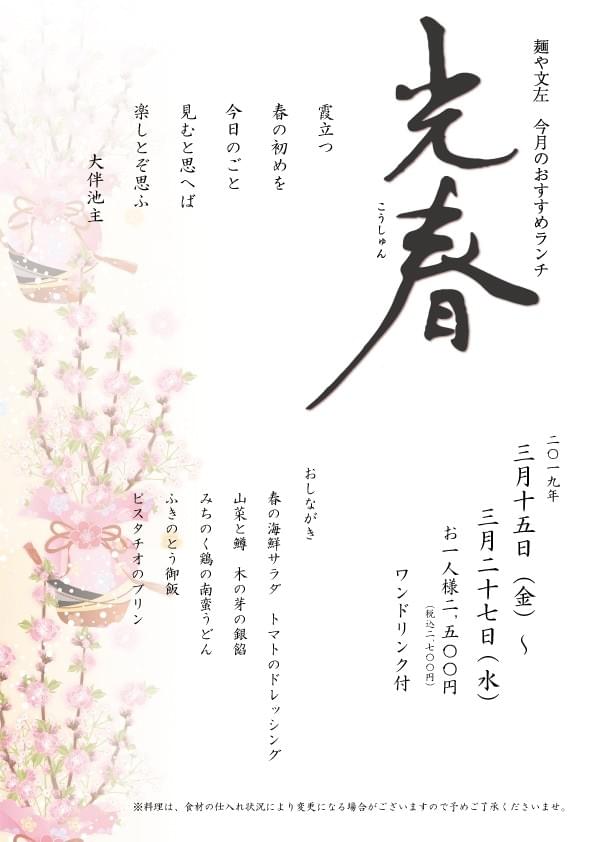 麺や文左　今月のおすすめランチ
光春
こうしゅん
霞立つ
春の初めを
今日のごと
見むと思へば
楽しとぞ思ふ
大伴池主
二〇一九年
三月十五日（金）～
三月二十七日（水）
お一人様二,五〇〇円
（税込二,七〇〇円）
ワンドリンク付
おしながき
春の海鮮サラダ　トマトのドレッシング
山菜と鱒　木の芽の銀餡
みちのく鶏の南蛮うどん
ふきのとう御飯
ピスタチオのプリン
※料理は、食材の仕入れ状況により変更になる場合がございますので予めご了承くださいませ。